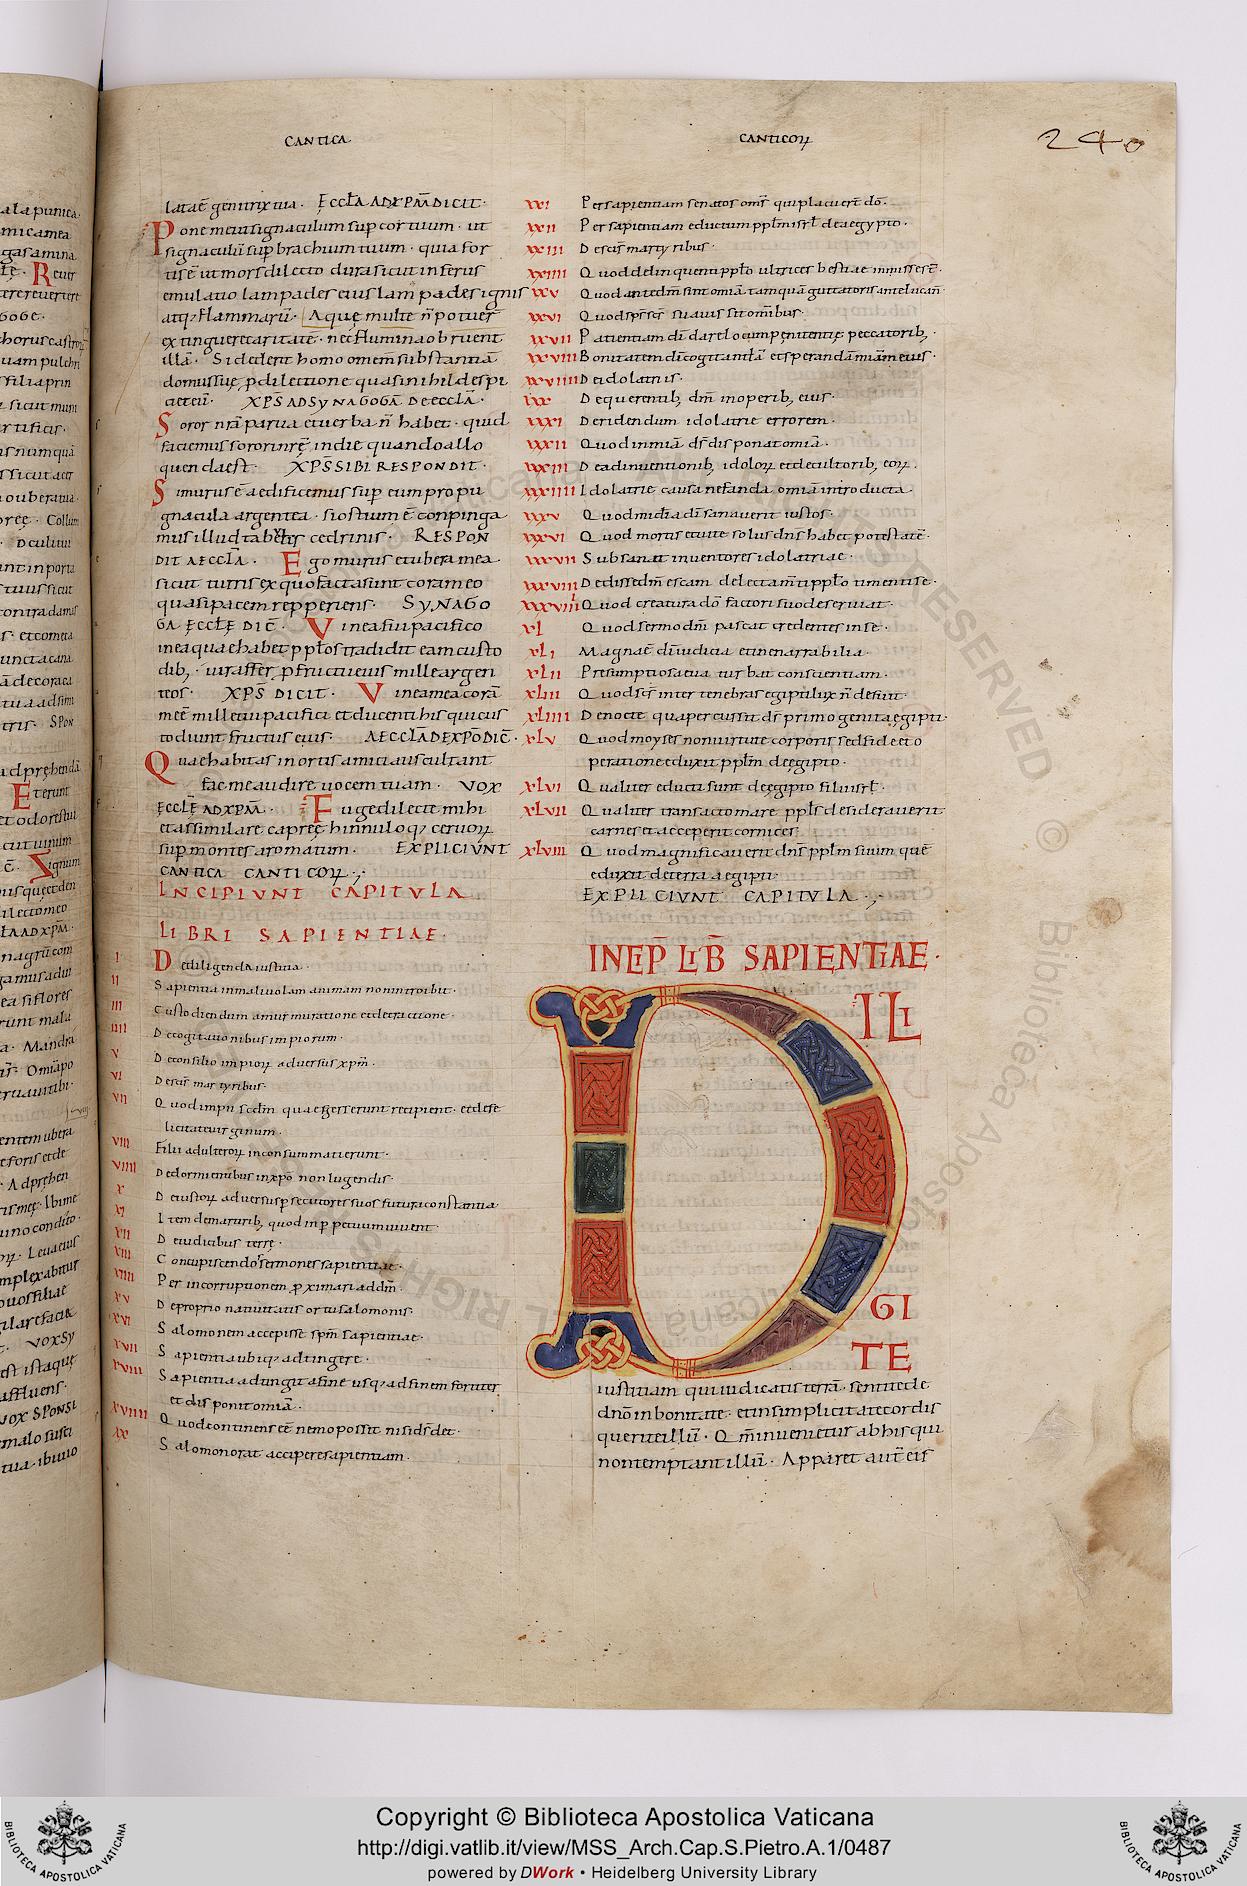 CANTICA
CANTICOꝜ
240
lataē genitrix tua. ĘCCLĀ AD XPM̄ DICIT.
Pone me ut signaculum sup̄ cor tuum. ut
signaculū sup̄ brachium tuum. quia for
tis ē ut mors dilectio dura sicut inferus
emulatio lampades eius lampades ignis
atq; flammarū. Aquę multę n̄ potuer̄
extinguere caritatē. nec flumina obruent
illā. Si dederit homo omem̄ substantiā
domus suę p̄ dilectione quasi nihil despi
ciet eū. XPS̄ AD SYNAGOGĀ DE ECCLĀ.
Soror nr̄a parua et uerba n̄ habet. quid
faciemus sorori nrę̄ in die quando allo
quenda est. XPS̄ SIBI RESPONDIT.
Si murus ē aedificemus sup̄ eum propu
gnacula argentea. si ostium ē conpinga
mus illud tabulis cedrinis. RESPON
DIT AECCLĀ. Ego murus et ubera mea
sicut turris ex quo facta sunt coram eo
quasi pacem repperiens. SYNAGO
GA ĘCCLĘ DIC̄. Vinea fuit pacifico
in ea qua habet pp̄los tradidit eam custo
dib;. uir affer̄ p̄ fructu eius mille argen
teos. XPS̄ DICIT. Vinea mea corā
me ē mille tui pacifici et ducenti his qui cus
todiunt fructus eius. AECCLA DE XPŌ DIC̄.
Qua ehabitas in ortis amici auscultant
fac me audire uocem tuam. VOX
ĘCCLĘ AD XPM̄. Fuge dilecte mihi
et assimilare capreę hinnuloq; ceruoꝝ
sup̄ montes aromatum. EXPLICIUNT
CANTICA CANTICOꝜ.
INCIPIUNT CAPITULA
LIBRI SAPIENTIAE.
I De diligenda iustitia.
II Sapientia in maliuolam animam non introibit.
III Custodiendum a murmuratione et detractione.
IIII De cogitationibus impiorum.
V De consilio impioꝝ aduersus xpm̄.
VI De scīs martyribus.
VII Quod impii scdm̄ quae gesserunt recipient. et de fe
licitate uirginum.
VIII Filii adulteroꝝ inconsummati erunt.
VIIII De dormientibus in xpō non lugendis.
X De iustoꝝ aduersus p̄secutores suos futura constantia
XI Item de martirib; quod in p̄petuum uiuent.
XII De iudicibus terrę.
XIII Concupiscendos sermones sapientiae.
XIIII Per incorruptionem p̄ximari ad dm̄.
XV De proprio natiuitatis ortu salomonis.
XVI Salomonem accepisse spm̄ sapientiae.
XVII Sapientia ubiq; adtingere.
XVIII Sapientia adtingit a fine usq; ad finem fortiter
et disponit omiā.
XVIIII Quod continens eē nemo possit nisi ds̄ det.
XX Salomon orat accipere sapientiam.
XXI Per sapientiam senatos oms̄ qui placuer̄ dō.
XXII Per sapientiam eductum pplm̄ isrl̄ de aegypto.
XXIII De scīs martyribus.
XXIIII Quod delinquenti pplo ultrices bestiae inmisse s̄.
XXV Quod ante dm̄ sint omiā tamquā gutta roris antelucan̄
XXVI Quod sps̄ suauis sit omībus.
XXVII Patientiam dī dare locum penitentię peccatorib;.
XXVIII Bonitatem dī cogitantdā et sperandā miām eius.
XXVIIII De idolatris.
XXX De querentib; dm̄ in operib; eius.
XXXI De ridendum idolatrie errorem.
XXXII Quod in miā ds̄ disponat omiā.
XXXIII De adinuentionib; idoloꝝ et de cultorib; eoꝝ.
XXXIIII Idolatrie causa nefanda omiā introducta.
XXXV Quod midia dī sanauerit iustos.
XXXVI Quod mortis et uite solus dns̄ habet potestatē.
XXXVII Subsanat inuentores idolatriae.
XXXVIII De dissedm̄ escam delectam̄ti pplo timentis e.
XXXVIIII Quod creatura dō factori suo deseruiat.
XL Quod sermo dni pascat credentes in se.
XLI Magna ē dī iudicia et inenarrabilia.
XLII Presumptio saeua turbat conscientiam.
XLIII Quod scīs inter tenebras egiptii lux n̄ defuit.
XLIIII De nocte qua percussit ds̄ primogenita egipti.
XLV Quod moyses non uirtute corporis sed fide et o
peratione eduxit pplm̄ de egipto.
XLVI Qualiter educti sunt de egipto filii isrl̄.
XLVII Qualiter transacto mare ppls̄ desiderauerit
carnes et acceperit cornices.
XLVIII Quod magnificauerit dns̄ pplm̄ suum quē
eduxit de terra aegipti.
EXPLICIUNT CAPITULA.
INCIP̄ LIB̄ SAPIENTIAE.
D
ILI
GI
TE
iustitiam qui iudicatis terrā. sentite de
dnō in bonitate. et in simplicitate cordis
querite illū. Qm̄ inuenietur ab his qui
non temptant illū. Apparet aut̄ eis
Copyright © Biblioteca Apostolica Vaticana
http://digi.vatlib.it/view/MSS_Arch.Cap.S.Pietro.A.1/0487
powered by DWork • Heidelberg University Library
BIBLIOTECA APOSTOLICA VATICANA
BIBLIOTECA APOSTOLICA VATICANA